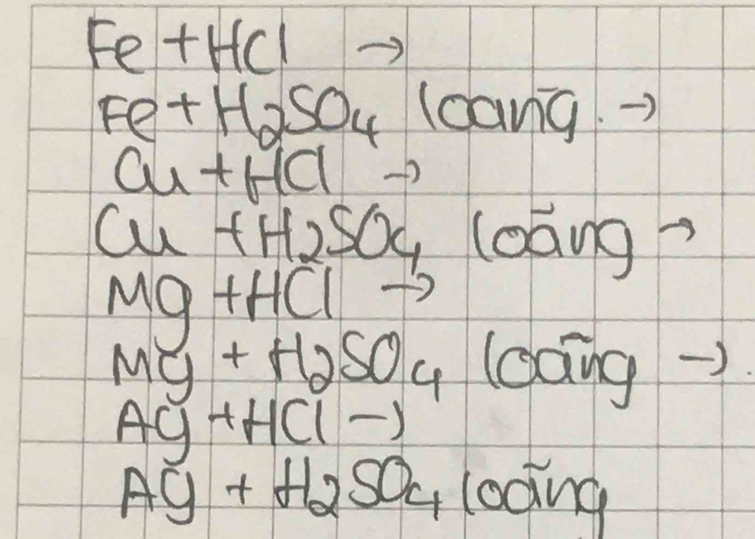 Fe + HCl →
Fe + H2SO4 loãng. →
Cu + HCl →
Cu + H2SO4 loãng →
Mg + HCl →
Mg + H2SO4 loãng →.
Ag + HCl →
Ag + H2SO4 loãng